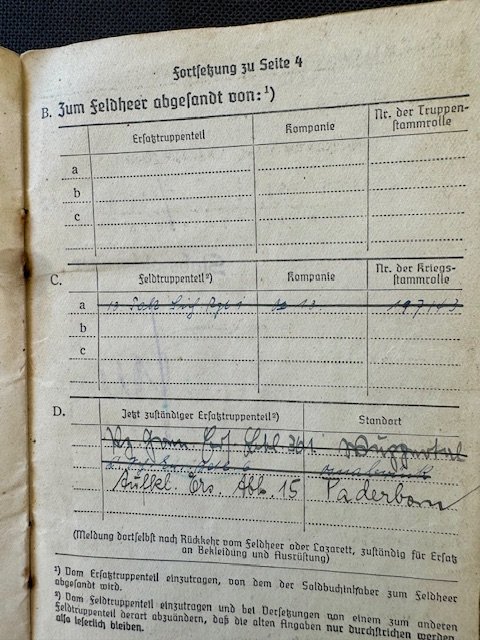 Fortsetzung zu Seite 4
B. Zum Feldheer abgesandt von:¹)
Ersatztruppenteil Kompanie Nr. der Truppen-
stammrolle
a
b
c
C. Feldtruppenteil²) Kompanie Nr. der Kriegs-
stammrolle
a 13
b
c
D. Jetzt zuständiger Ersatztruppenteil²) Standort
Wuppertal
Aufkl. Ers. Abt. 15 Paderborn
(Meldung dortselbst nach Rückkehr vom Feldheer oder Lazarett, zuständig für Ersatz
an Bekleidung und Ausrüstung)
¹) Vom Ersatztruppenteil einzutragen, von dem der Soldbuchinhaber zum Feldheer
abgesandt wird.
²) Vom Feldtruppenteil einzutragen und bei Versetzungen von einem zum anderen
Feldtruppenteil derart abzuändern, daß die alten Angaben nur durchstrichen werden,
also leserlich bleiben.